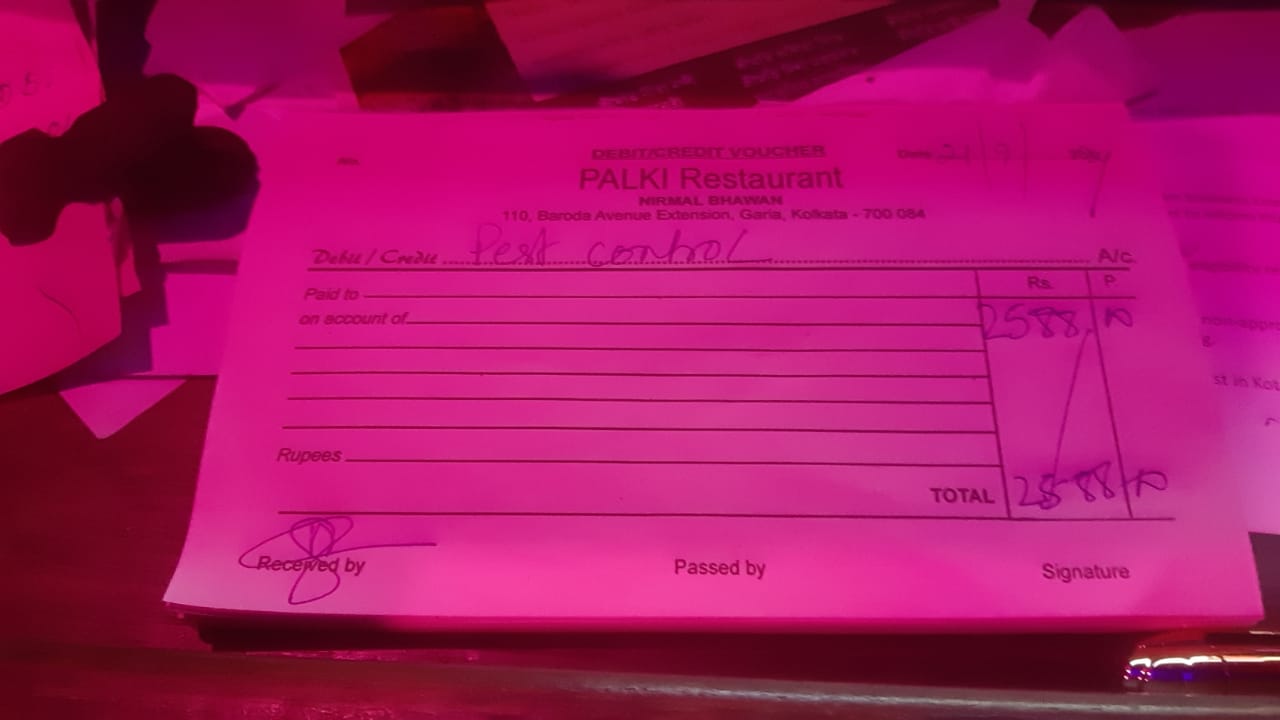 No.
DEBIT/CREDIT VOUCHER
Date 21/9/
PALKI Restaurant
NIRMAL BHAWAN
110, Baroda Avenue Extension, Garia, Kolkata - 700 084
Debit / Credit Pest control A/c.
Rs. P.
Paid to
on account of 2588.00
Rupees
TOTAL 2588 00
Received by Passed by Signature
st in Kol